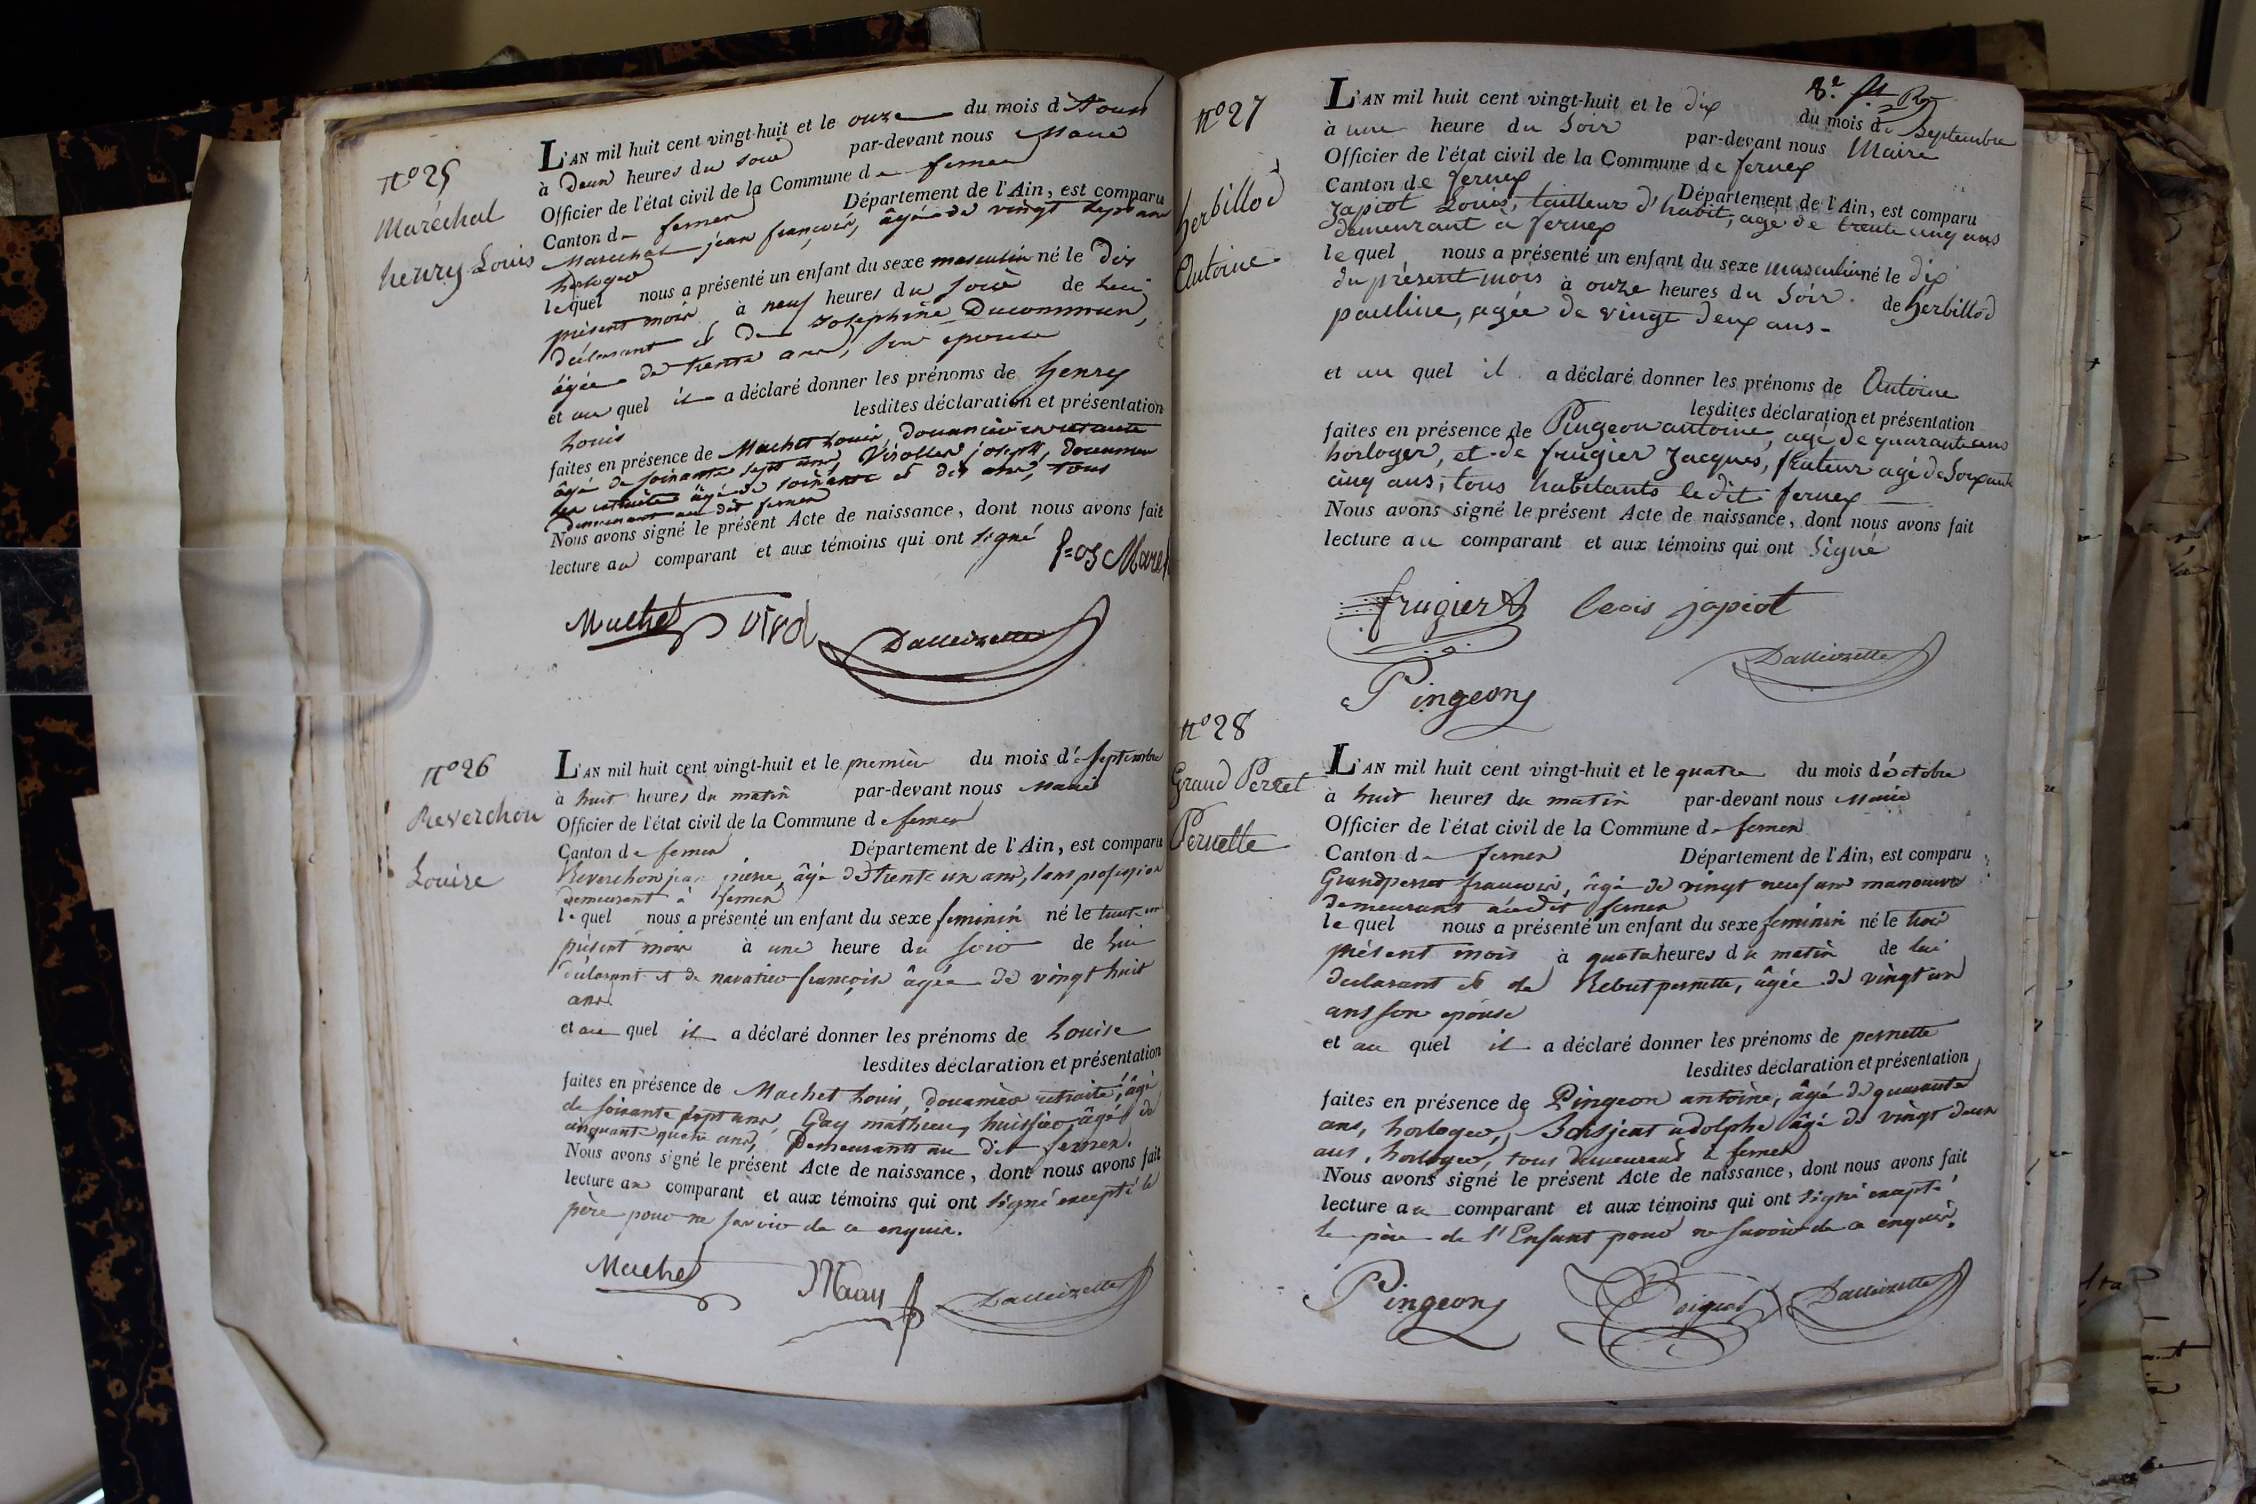 nº 25
Maréchal
henry Louis
L'AN mil huit cent vingt-huit et le onze du mois d'Aoust
à deux heures du soir par-devant nous Maire
Officier de l'état civil de la Commune de fernex
Canton de fernex Département de l'Ain, est comparu
Marechal jean françois, âgé de vingt sept ans
horloger
lequel nous a présenté un enfant du sexe masculin né le Dix
présent mois, à neuf heures du soir de lui
déclarant et de Josephine Ducommun,
âgée de trente ans, son epouse
et au quel il a déclaré donner les prénoms de henry
Louis lesdites déclaration et présentation
faites en présence de Machet Louis, douanier en retraite
âgé de soixante sept ans, Virollet joseph, douanier
en retraite âgé de soixante et dix ans, tous
demeurant au dit fernex
Nous avons signé le présent Acte de naissance, dont nous avons fait
lecture au comparant et aux témoins qui ont signé
f=os Marel
Machet virol Dalleizette
nº 26
Reverchon
Louise
L'AN mil huit cent vingt-huit et le premier du mois de septembre
à huit heures du matin par-devant nous Maire
Officier de l'état civil de la Commune de fernex
Canton de fernex Département de l'Ain, est comparu
Reverchon jean pierre, âgé de trente un ans, sans profession
demeurant à fernex
lequel nous a présenté un enfant du sexe feminin né le
présent mois à une heure du soir de lui
déclarant et de françoise âgée de vingt huit
ans
et au quel il a déclaré donner les prénoms de Louise
lesdites déclaration et présentation
faites en présence de Machet Louis, douanier retraité, âgé
de soixante sept ans, Gay mathieu, huissier, âgé de
cinquante quatre ans, Demeurants au dit fernex.
Nous avons signé le présent Acte de naissance, dont nous avons fait
lecture au comparant et aux témoins qui ont signé excepté le
père pour ne savoir de ce enquis.
Machet MGay Dalleizette
8.e
nº 27
herbillod
Antoine
L'AN mil huit cent vingt-huit et le dix du mois de Septembre
à une heure du Soir par-devant nous Maire
Officier de l'état civil de la Commune de fernex
Canton de fernex Département de l'Ain, est comparu
Japiot Louis, tailleur d'habit, agé de trente cinq ans
demeurant à fernex
lequel nous a présenté un enfant du sexe masculin né le dix
du présent mois à onze heures du Soir. de herbillod
pauline, agée de vingt deux ans -
et au quel il a déclaré donner les prénoms de Antoine
lesdites déclaration et présentation
faites en présence de Pingeon antoine, agé de quarante ans
horloger, et de frugier Jacques, agé de Soixante
cinq ans, tous habitants le dit fernex
Nous avons signé le présent Acte de naissance, dont nous avons fait
lecture au comparant et aux témoins qui ont Signé
frugier Louis japiot
Dalleizette
Pingeon
nº 28
Grand Perret
Pernette
L'AN mil huit cent vingt-huit et le quatre du mois d'octobre
à huit heures du matin par-devant nous Maire
Officier de l'état civil de la Commune de fernex
Canton de fernex Département de l'Ain, est comparu
Grandperret francois, âgé de vingt neuf ans manoeuvre
demeurant au dit fernex
lequel nous a présenté un enfant du sexe feminin né le trois
présent mois à quatre heures du matin de lui
declarant et de Rebut pernette, âgée de vingt un
ans son epouse
et au quel il a déclaré donner les prénoms de pernette
lesdites déclaration et présentation
faites en présence de Pingeon antoine, âgé de quarante
ans, horloger, adolphe âgé de vingt deux
ans, horloger, tous demeurans à fernex
Nous avons signé le présent Acte de naissance, dont nous avons fait
lecture au comparant et aux témoins qui ont signé excepté
le père de l'Enfant pour ne savoir de ce enquis.
Pingeon Dalleizette